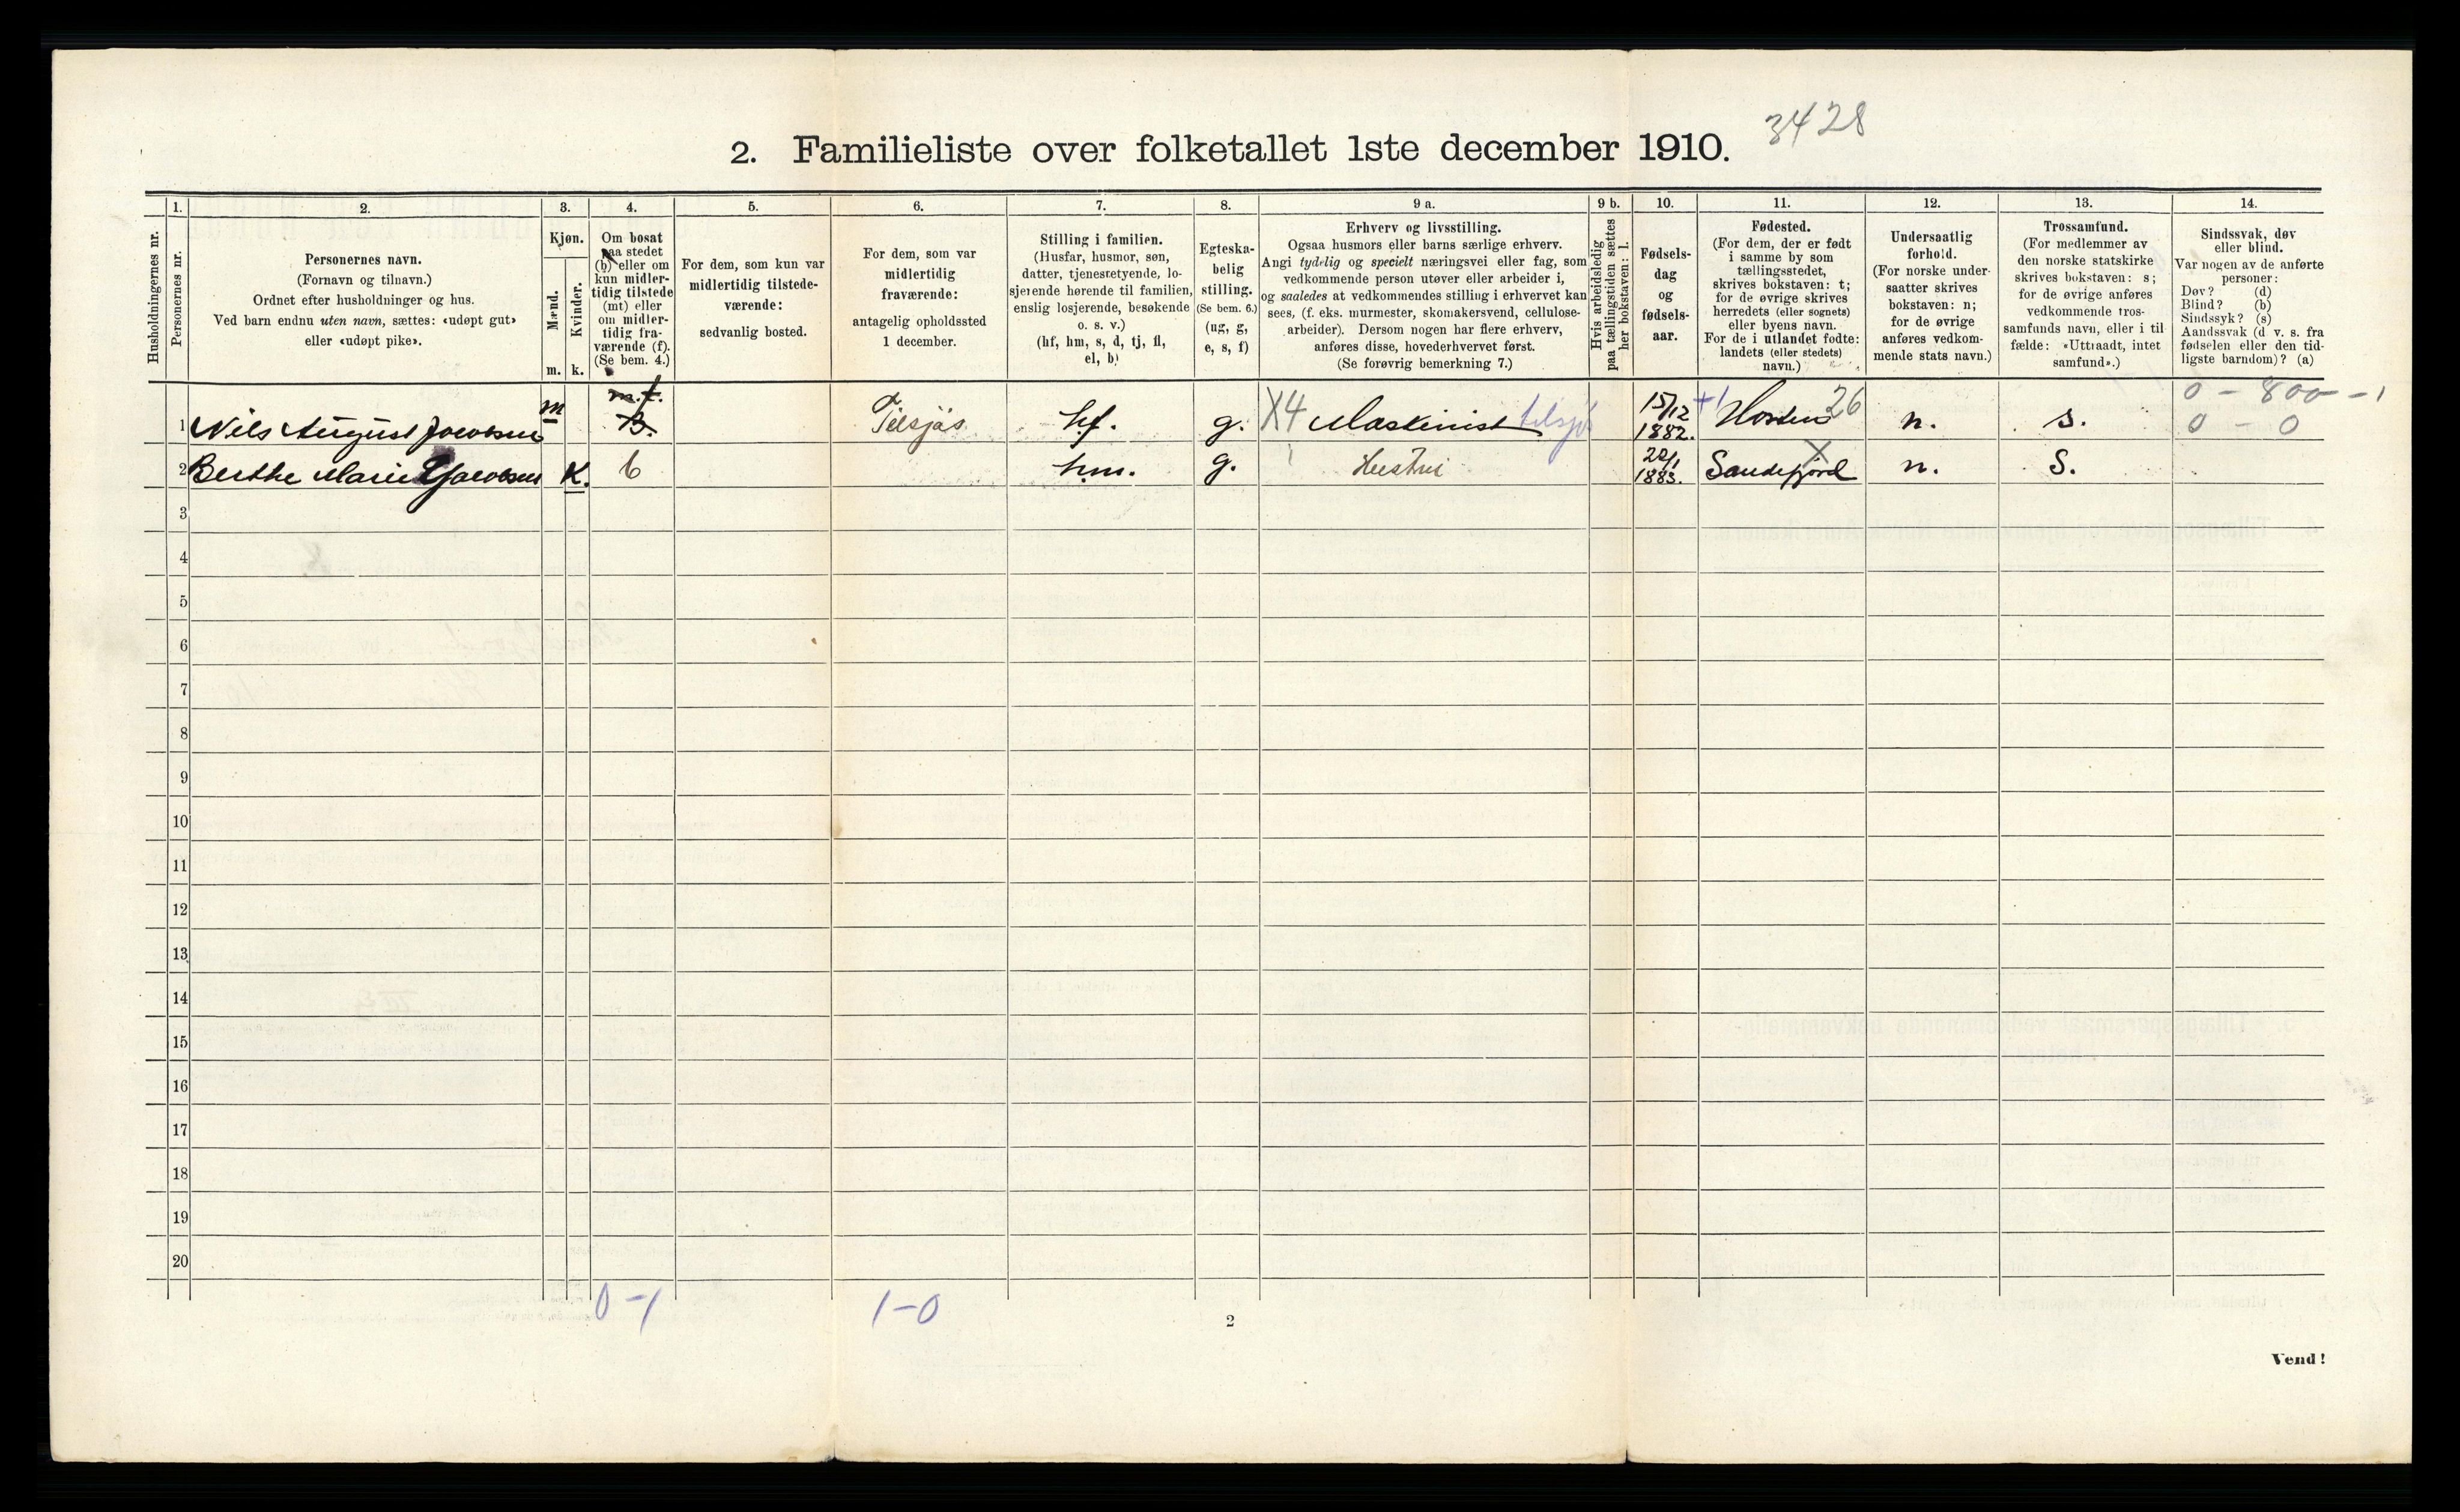 3428
2. Familieliste over folketallet 1ste december 1910.
Husholdningernes nr.
1.
Personernes nr.
2.
Personernes navn.
(Fornavn og tilnavn.)
Ordnet efter husholdninger og hus.
Ved barn endnu uten navn, sættes: «udøpt gut»
eller «udøpt pike».
3.
Kjøn.
Mænd.
Kvinder.
m. k.
4.
Om bosat
paa stedet
(b) eller om
kun midler-
tidig tilstede
(mt) eller
om midler-
tidig fra-
værende (f).
(Se bem. 4.)
5.
For dem, som kun var
midlertidig tilstede-
værende:
sedvanlig bosted.
6.
For dem, som var
midlertidig
fraværende:
antagelig opholdssted
1 december.
7.
Stilling i familien.
(Husfar, husmor, søn,
datter, tjenestetyende, lo-
sjerende hørende til familien,
enslig losjerende, besøkende
o. s. v.)
(hf, hm, s, d, tj, fl,
el, b)
8.
Egteska-
belig
stilling.
(Se bem. 6.)
(ug, g,
e, s, f)
9 a.
Erhverv og livsstilling.
Ogsaa husmors eller barns særlige erhverv.
Angi tydelig og specielt næringsvei eller fag, som
vedkommende person utøver eller arbeider i,
og saaledes at vedkommendes stilling i erhvervet kan
sees, (f. eks. murmester, skomakersvend, cellulose-
arbeider). Dersom nogen har flere erhverv,
anføres disse, hovederhvervet først.
(Se forøvrig bemerkning 7.)
9 b.
Hvis arbeidsledig
paa tællingstiden sættes
her bokstaven: l.
10.
Fødsels-
dag
og
fødsels-
aar.
11.
Fødested.
(For dem, der er født
i samme by som
tællingsstedet,
skrives bokstaven: t;
for de øvrige skrives
herredets (eller sognets)
eller byens navn.
For de i utlandet fødte:
landets (eller stedets)
navn.)
12.
Undersaatlig
forhold.
(For norske under-
saatter skrives
bokstaven: n;
for de øvrige
anføres vedkom-
mende stats navn.)
13.
Trossamfund.
(For medlemmer av
den norske statskirke
skrives bokstaven: s;
for de øvrige anføres
vedkommende tros-
samfunds navn, eller i til
fælde: «Uttraadt, intet
samfund».)
14.
Sindssvak, døv
eller blind.
Var nogen av de anførte
personer:
Døv? (d)
Blind? (b)
Sindssyk? (s)
Aandssvak (d v. s. fra
fødselen eller den tid-
ligste barndom)? (a)
1 Nils August Jacobsen m m.t. B. Tilsjøs hf. g. X4 Maskinist tilsjøs 15/12 1882. +1 Horten 26 n. s. 0 - 800 - 1
0 - 0
2 Berthe Marie Jacobsen K. b hm. g. Hustru 1883. Sandefjord X n. S.
3
4
5
6
7
8
9
10
11
12
13
14
15
16
17
18
19
20
0-1 1-0
2
Vend!